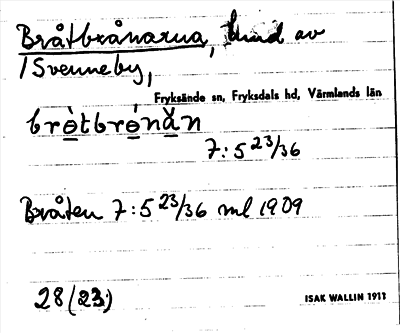 Bråtbrånarna, hmd av
/ Svenneby,
Fryksände sn, Fryksdals hd, Värmlands län
bròtbrónăn
7:5 23/36
Bråten 7:5 23/36 ml 1909
28 (23)
ISAK WALLIN 1911